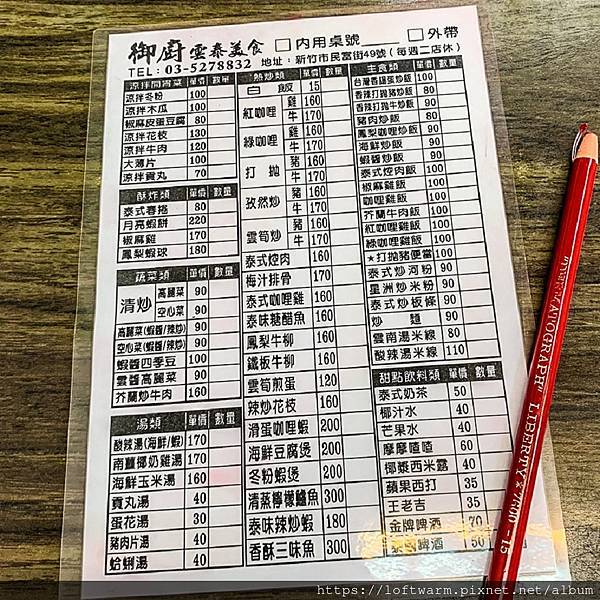 御廚雲泰美食 □內用桌號 □外帶
TEL: 03-5278832 地址：新竹市民富街49號（每週二店休）
涼拌開胃菜 單價 數量
涼拌冬粉 100
涼拌木瓜 100
椒麻皮蛋豆腐 80
涼拌花枝 130
涼拌牛肉 120
大薄片 100
涼拌貢丸 70
酥炸類 單價 數量
泰式春捲 80
月亮蝦餅 220
椒麻雞 170
鳳梨蝦球 180
蔬菜類 單價 數量
清炒 高麗菜 90
空心菜 90
高麗菜(蝦醬/辣炒) 90
空心菜(蝦醬/辣炒) 90
蝦醬四季豆 100
雲醬高麗菜 90
芥蘭炒牛肉 160
湯類 單價 數量
酸辣湯(海鮮/蝦) 170
南薑椰奶雞湯 170
海鮮玉米湯 160
貢丸湯 40
蛋花湯 30
豬肉片湯 40
蛤蜊湯 40
熱炒類 單價 數量
白飯 15
紅咖哩 雞 160
牛 170
綠咖哩 雞 160
牛 170
打拋 豬 160
牛 170
孜然炒 豬 160
牛 170
雲筍炒 豬 160
牛 170
泰式焢肉 160
梅汁排骨 170
泰式咖哩雞 160
泰味糖醋魚 160
鳳梨牛柳 160
鐵板牛柳 160
雲筍煎蛋 120
辣炒花枝 160
滑蛋咖哩蝦 200
海鮮豆腐煲 200
冬粉蝦煲 200
清蒸檸檬鱸魚 300
泰味辣炒蝦 180
香酥三味魚 300
主食類 單價 數量
台灣香腸蛋炒飯 100
香辣打拋豬炒飯 80
香辣打拋牛炒飯 90
豬肉炒飯 80
鳳梨咖哩炒飯 90
海鮮炒飯 90
蝦醬炒飯 90
泰式焢肉飯 100
椒麻雞飯 100
咖哩雞飯 90
芥蘭牛肉飯 90
紅咖哩雞飯 90
綠咖哩雞飯 90
★打拋豬便當 90
泰式炒河粉 90
星洲炒米粉 90
泰式炒板條 90
炒麵 90
雲南湯米線 80
酸辣湯米線 110
甜點飲料類 單價 數量
泰式奶茶 50
椰汁水 40
芒果水 40
摩摩喳喳 60
椰漿西米露 40
蘋果西打 35
王老吉 35
金牌啤酒 70
泰國啤酒
"DERMATOGRAPH" LIBERTY ★ 7600-15
https://loftwarm.pixnet.net/album